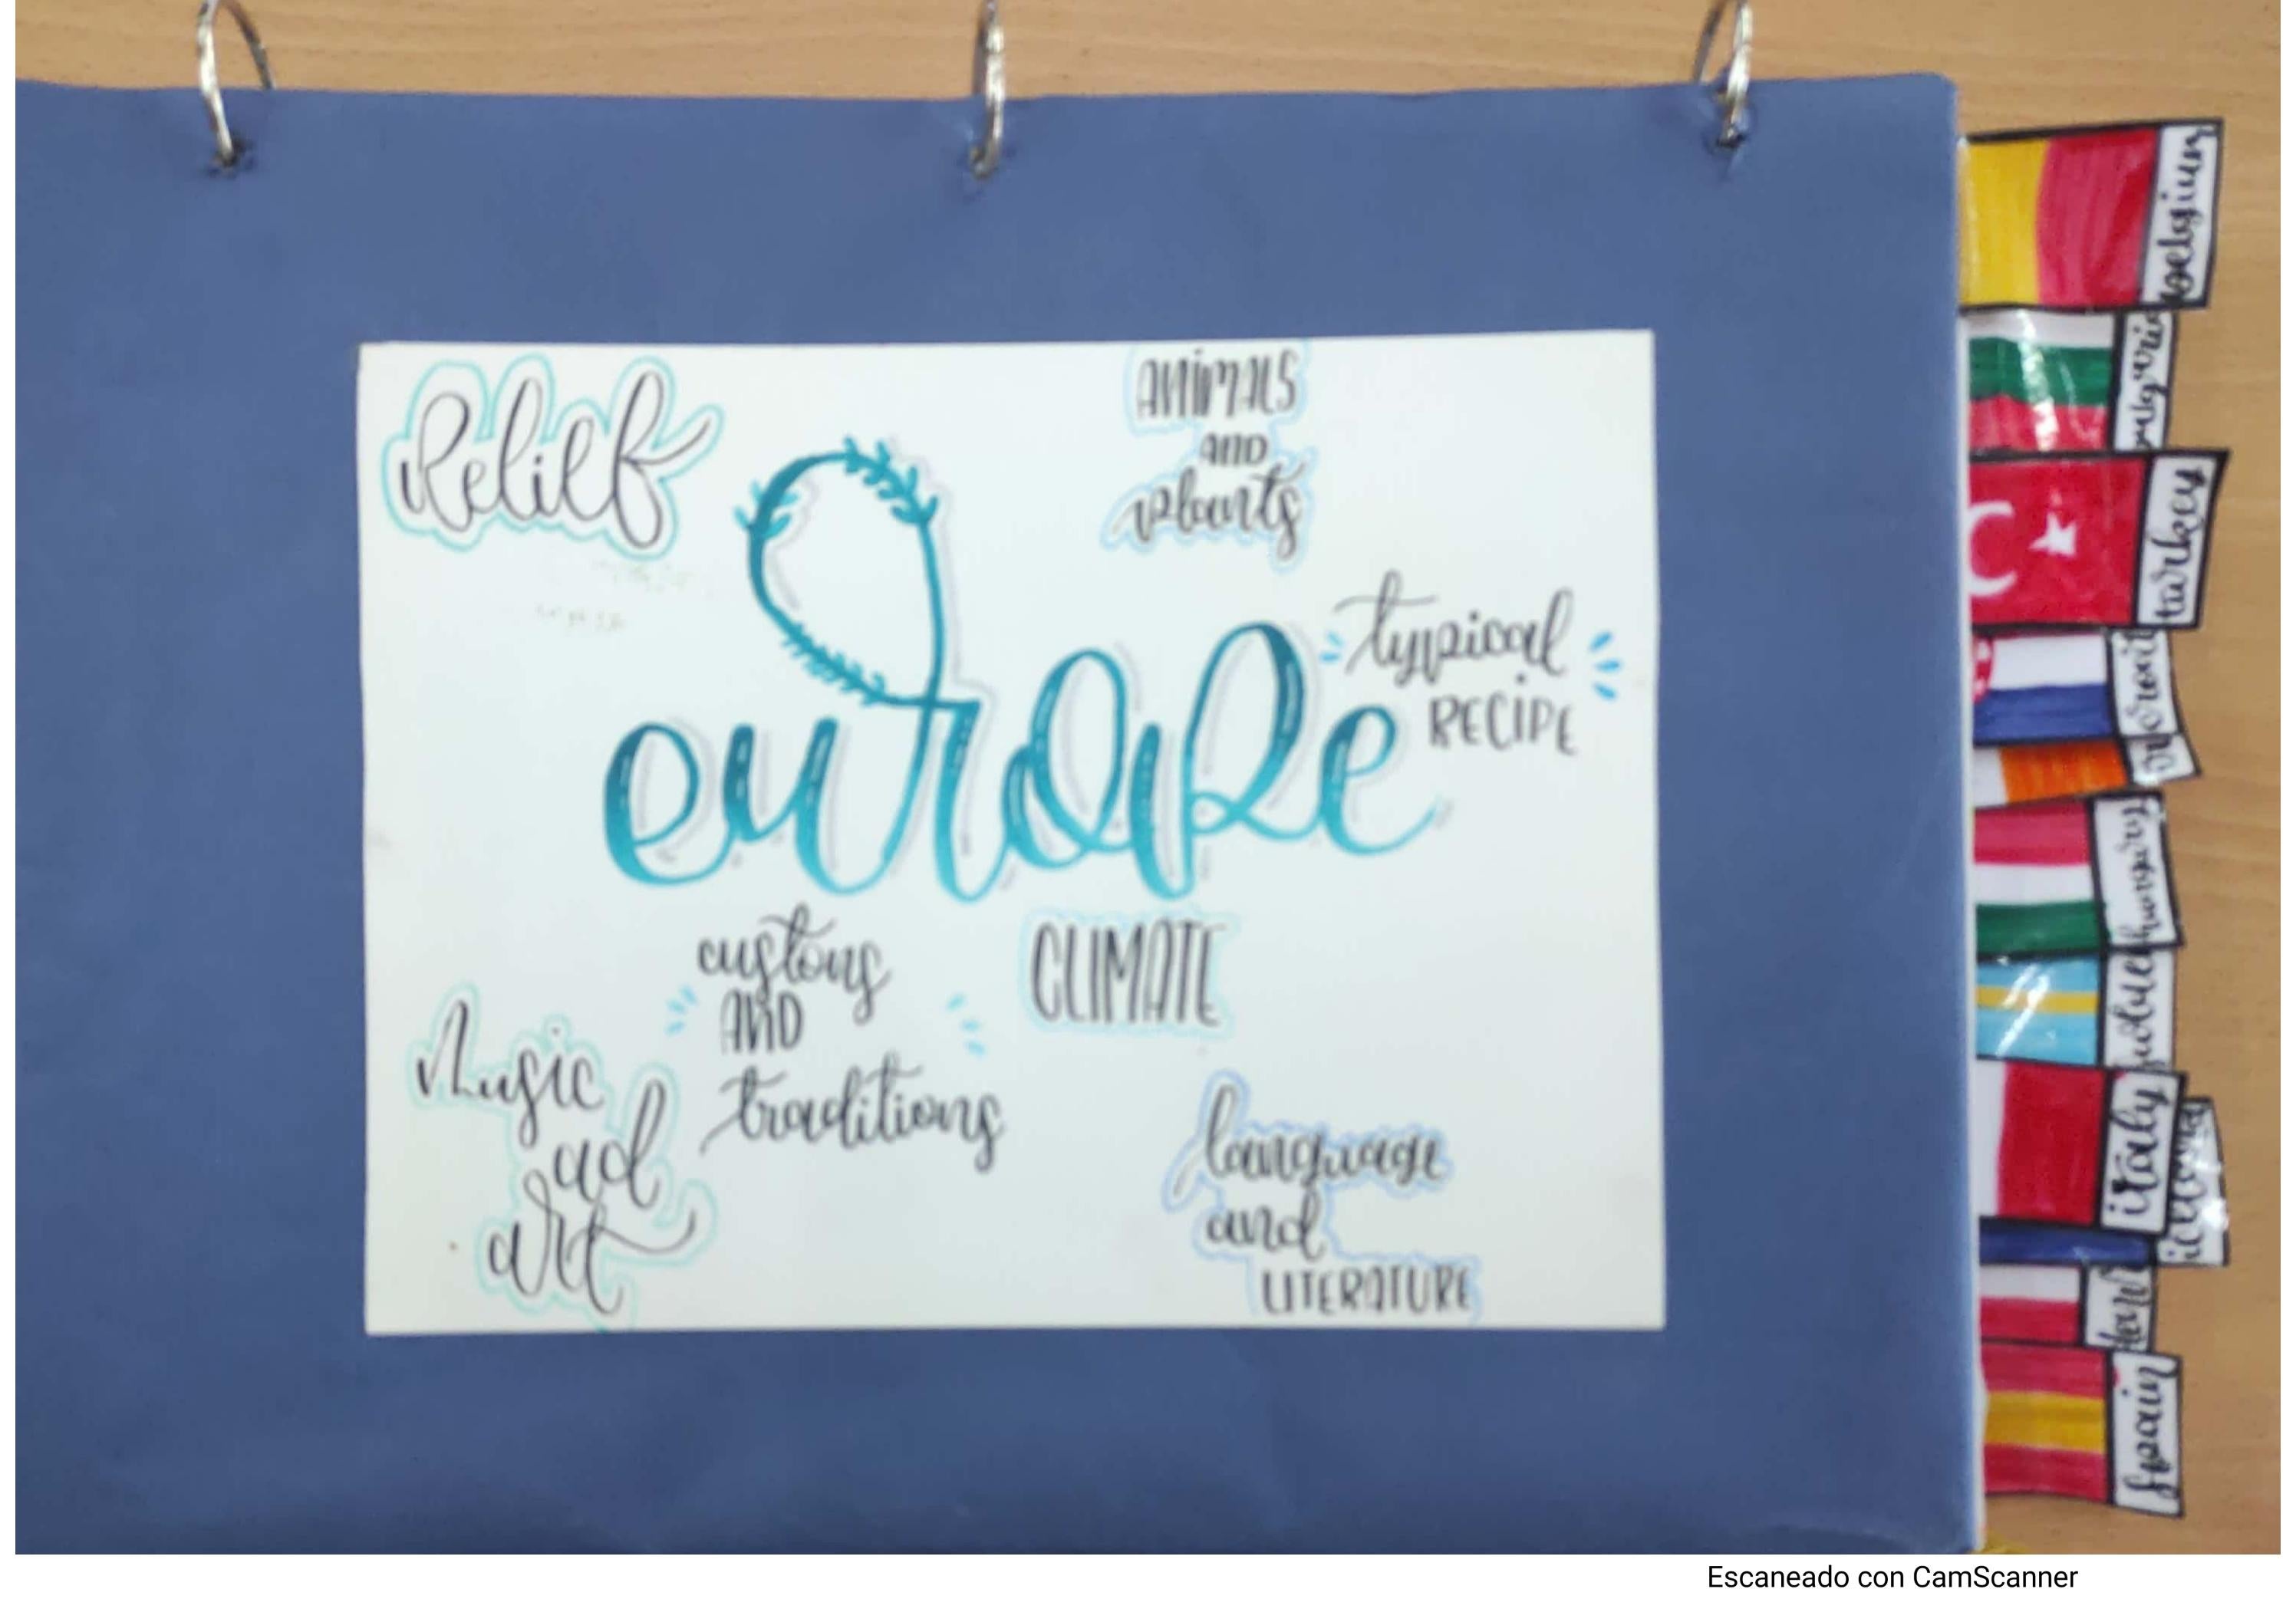 Relief
ANIMALS
AND
plants
typical
RECIPE
europe
customs
AND
traditions
CLIMATE
Music
ad
art
language
and
LITERATURE
belgium
turkey
hungary
italy
spain
Escaneado con CamScanner